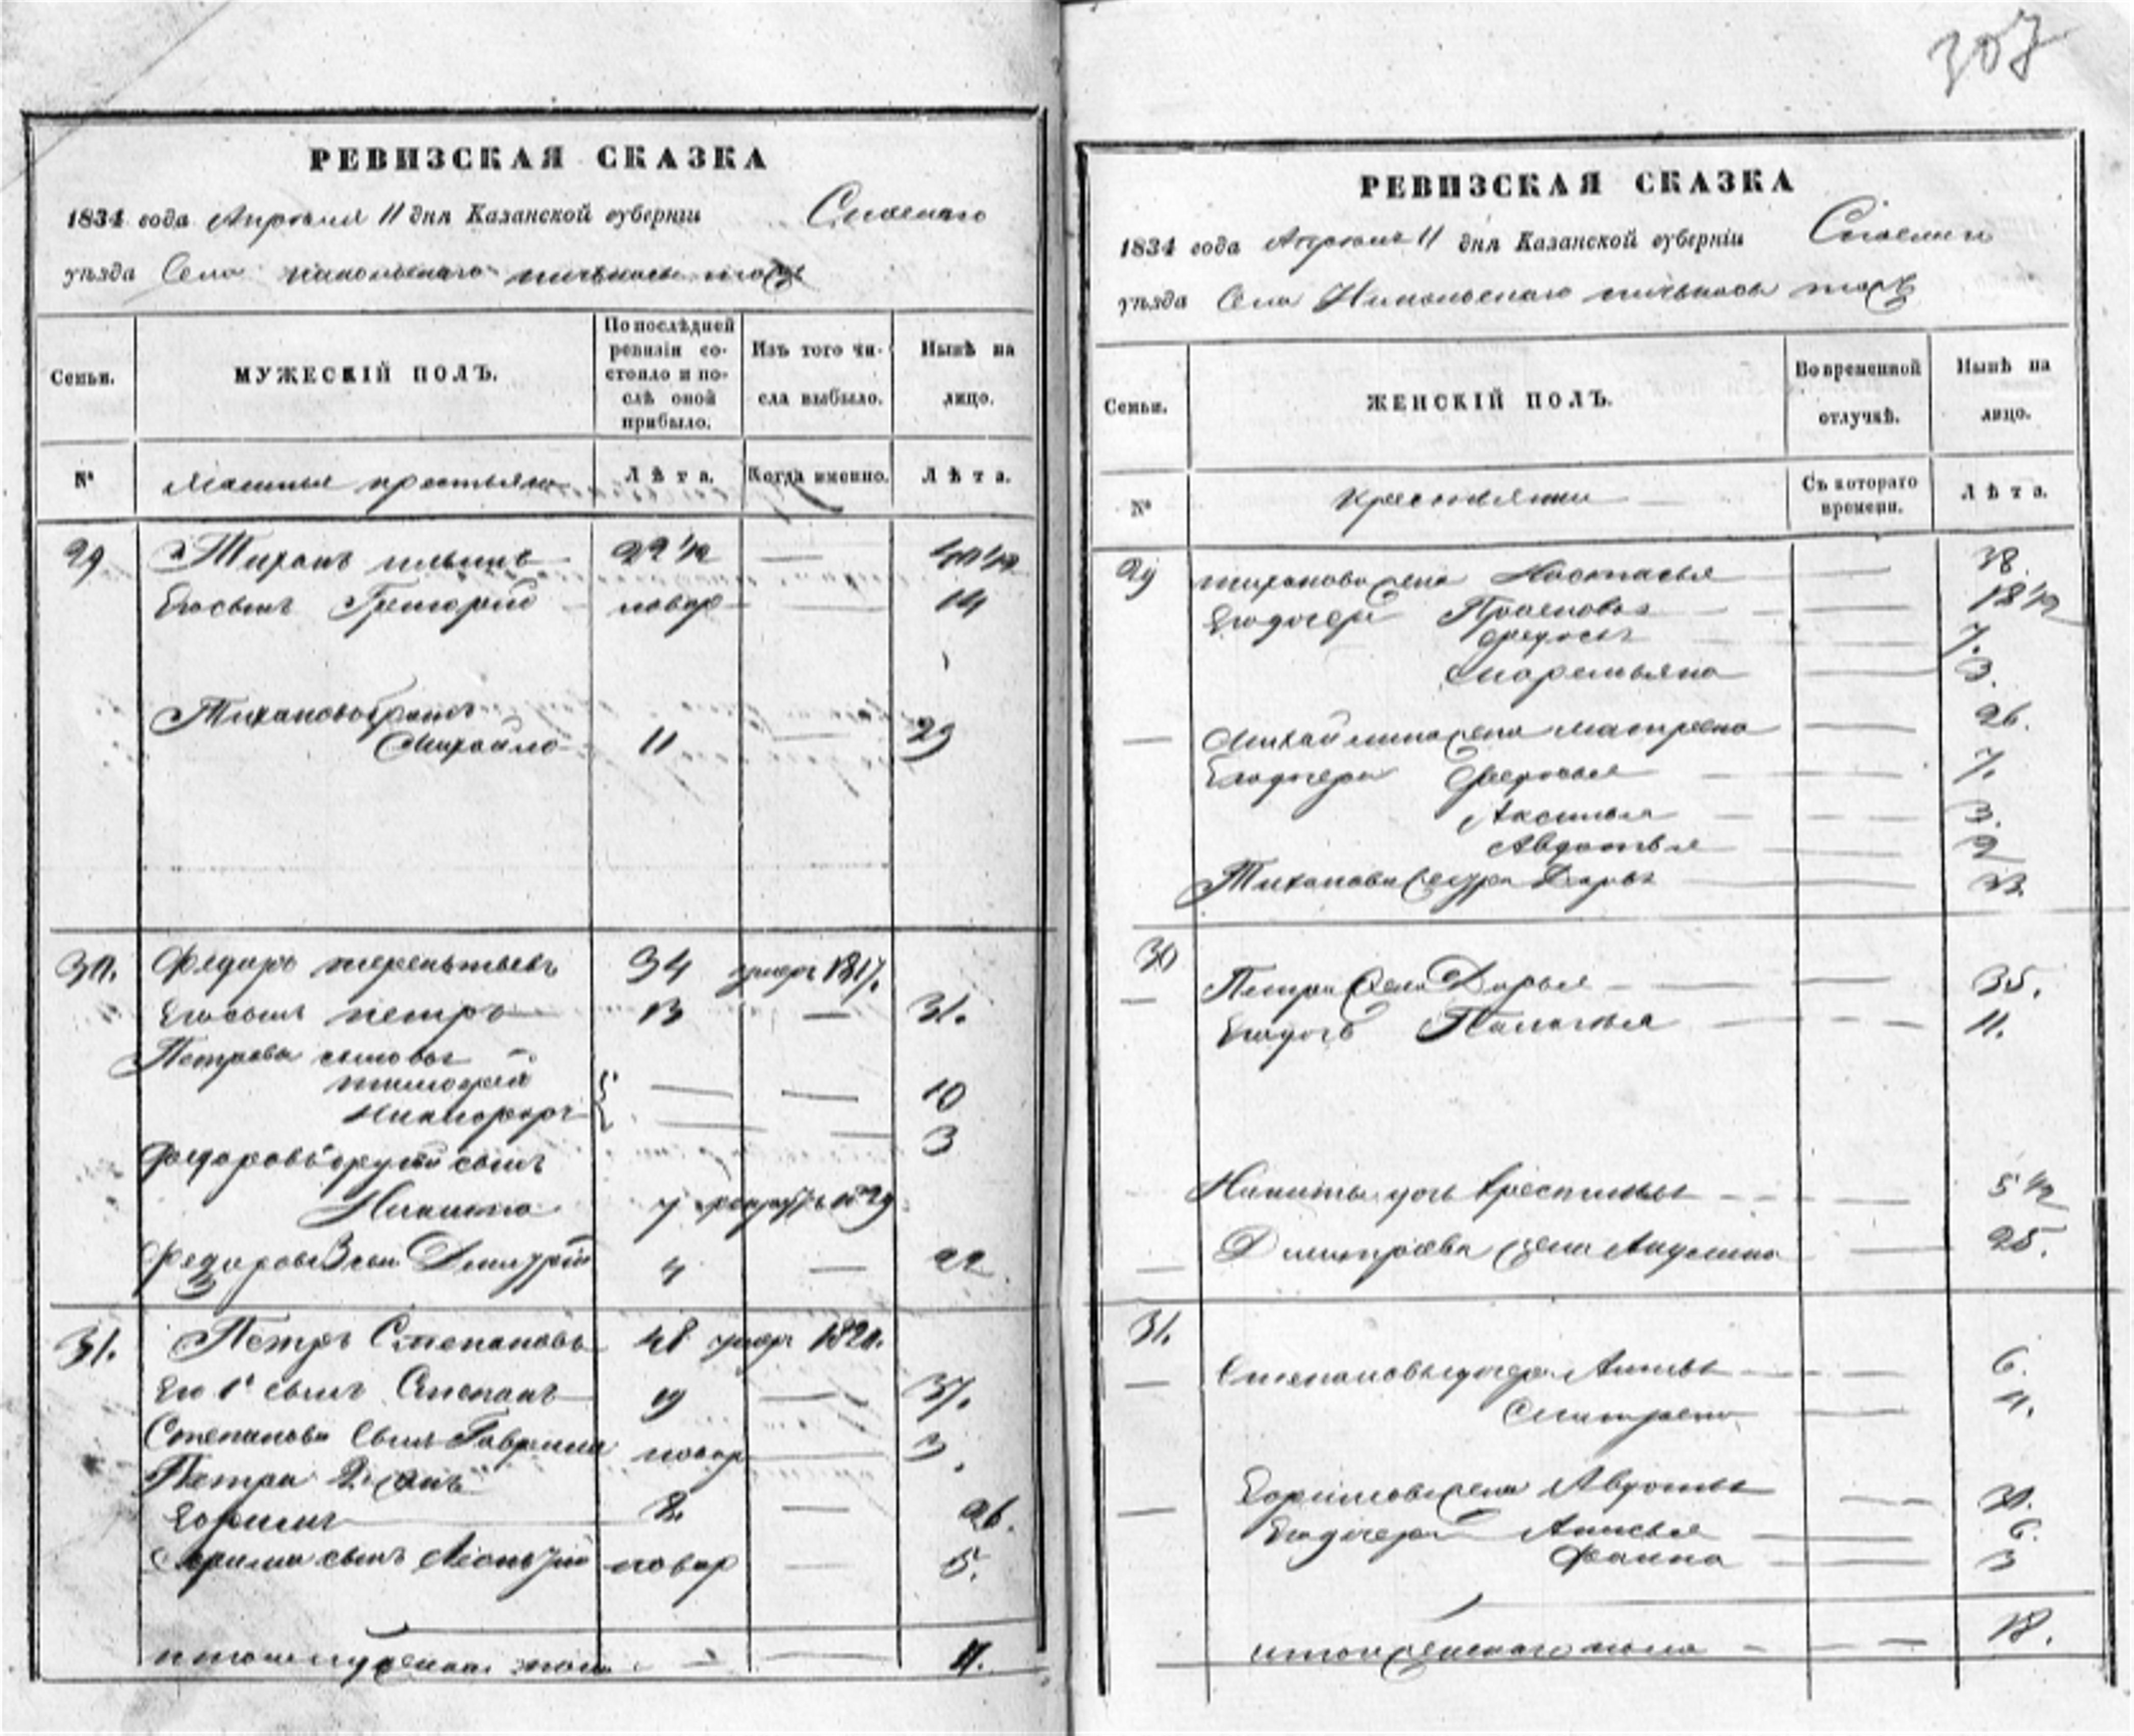 307
РЕВИЗСКАЯ СКАЗКА
1834 года Апреля 11 дня Казанской губернiи Спаскаго
уѣзда Села Никольскаго тожъ
Семьи.
МУЖЕСКIЙ ПОЛЪ.
По послѣдней ревизiи состояло и послѣ оной прибыло.
Изъ того числа выбыло.
Нынѣ на лицо.
№
крестьяне
Лѣта.
Когда именно.
Лѣта.
29 Тихонъ Ильинъ 22 1/2 — 40 1/2
Его сынъ Григорiй новор — 14
Тихоновъ братъ
Михайло 11 — 29
30. Федоръ терентьевъ 34 умеръ 1817.
Его сынъ петръ 13 — 31.
Петрова сыновья
тимофей — — 10
Никифоръ — — 3
Федоровъ другой сынъ
Никита 7 рекрутъ 1829
Федоровъ 3 сынъ Дмитрiй 4 — 22.
31. Петръ Степановъ 48 умеръ 1820.
Его 1й сынъ Степанъ 19 — 37.
Степанова сынъ Гаврила новор — 3.
Петра 2й сынъ
Ефимъ 8. — 26.
Ефима сынъ Леонтiй новор — 5.
итого мужеска пола — — 11.
РЕВИЗСКАЯ СКАЗКА
1834 года Апреля 11 дня Казанской губернiи Спаскаго
уѣзда Села Никольскаго тожъ
Семьи.
ЖЕНСКIЙ ПОЛЪ.
Во временной отлучкѣ.
Нынѣ на лицо.
№
крестьянки
Съ котораго времени.
Лѣта.
29 тихонова жена Настасья — 38.
Его дочери Прасковья — 18 1/2
Федосья — 7.
Маремьяна — 3.
— Михайлина жена матрена — 26.
Его дочери Федосья — 7.
Аксинья — 3.
Авдотья — 2
Тихонова сестра Дарья — 23.
30
— Петра жена Дарья — 35.
Его дочь Палагья — 11.
Никиты дочь Крестинья — 5 1/2
— Дмитрiева жена Акулина — 25.
31.
— Степановы дочери Анна — 6.
Матрена — 4.
— Ефимова жена Авдотья — 30.
Его дочери Анисья — 6.
Фаина — 3
итого женскаго пола — 18.